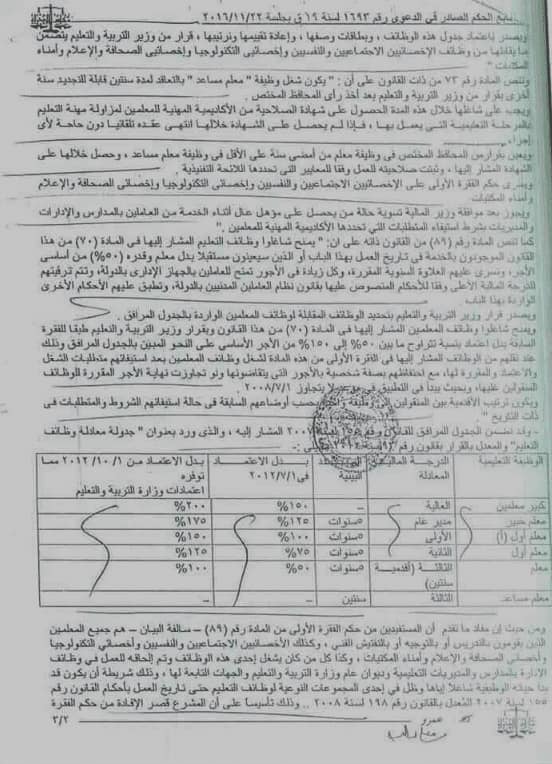 تابع الحكم الصادر في الدعوى رقم ١٦٩٣ لسنة ١٩ ق بجلسة ٢٠١٦/١١/٢٢
ويصدر باعتماد جدول هذه الوظائف ، وبطاقات وصفها ، وإعادة تقييمها وترتيبها ، قرار من وزير التربية والتعليم يتضمن
ما يقابلها من وظائف الإخصائيين الاجتماعيين والنفسيين وإخصائيى التكنولوجيا وإخصائيى الصحافة والإعلام وأمناء
المكتبات "
وتنص المادة رقم ٧٣ من ذات القانون على أن : " يكون شغل وظيفة " معلم مساعد " بالتعاقد لمدة سنتين قابلة للتجديد سنة
أخرى بقرار من وزير التربية والتعليم بعد أخذ رأى المحافظ المختص .
ويجب على شاغلها خلال هذه المدة الحصول على شهادة الصلاحية من الأكاديمية المهنية للمعلمين لمزاولة مهنة التعليم
بالمرحلة التعليمية التي يعمل بها ، فإذا لم يحصل على الشهادة خلالها انتهى عقده تلقائيا دون حاجة لأى
إجراء.
ويعين بقرار من المحافظ المختص فى وظيفة معلم من أمضى سنة على الأقل فى وظيفة معلم مساعد ، وحصل خلالها على
الشهادة المشار إليها ، وثبتت صلاحيته للعمل وفقا للمعايير التى تحددها اللائحة التنفيذية .
ويسرى حكم الفقرة الأولى على الإخصائيين الاجتماعيين والنفسيين وإخصائى التكنولوجيا وإخصائى الصحافة والإعلام
وأمناء المكتبات
ويجوز بعد موافقة وزير المالية تسوية حالة من يحصل على مؤهل عال أثناء الخدمة من العاملين بالمدارس والإدارات
والمديريات بشرط استيفاء المتطلبات التى تحددها الأكاديمية المهنية للمعلمين . "
كما تنص المادة رقم (٨٩) من القانون ذاته على ان: " يمنح شاغلوا وظائف التعليم المشار إليها فى المادة (٧٠) من هذا
القانون الموجودون بالخدمة فى تاريخ العمل بهذا الباب أو الذين سيعينون مستقبلا بدل معلم وقدره (٥٠%) من أساسى
الأجر، وتسرى عليهم العلاوة السنوية المقررة، وكل زيادة فى الأجور تمنح للعاملين بالجهاز الإدارى بالدولة، وتتم ترقيتهم
للدرجة المالية الأعلى وفقا للأحكام المنصوص عليها بقانون نظام العاملين المدنيين بالدولة، وتطبق عليهم الأحكام الأخرى
الواردة بهذا الباب.
ويصدر قرار وزير التربية والتعليم بتحديد الوظائف المقابلة لوظائف المعلمين الواردة بالجدول المرافق .
ويمنح شاغلوا وظائف المعلمين المشار إليها فى المادة (٧٠) من هذا القانون وبقرار وزير التربية والتعليم طبقا للفقرة
السابقة بدل اعتماد بنسبة تتراوح ما بين ٥٠% إلى ١٥٠% من الأجر الأساسى على النحو المبين بالجدول المرافق وذلك
عند نقلهم من الوظائف المشار إليها فى الفقرة الأولى من هذه المادة لشغل وظائف المعلمين بعد استيفائهم متطلبات الشغل
والاعتماد والمقررة لها، مع احتفاظهم بصفة شخصية بالأجور التى يتقاضونها ولو تجاوزت نهاية الأجر المقررة للوظائف
المنقولين عليها، وبحيث يبدأ فى التطبيق فى موعد لا يتجاوز ٢٠٠٨/٧/١
ويكون ترتيب الأقدمية بين المنقولين إلى وظيفة بحسب أوضاعهم السابقة فى حالة استيفائهم الشروط والمتطلبات فى
ذات التاريخ "
- وقد تضمن الجدول المرافق للقانون رقم ٢٠٠٧ المشار إليه ، والذى ورد بعنوان " جدولة معادلة وظائف
التعليم" والمعدل بالقرار بقانون رقم
الوظيفة التعليمية | الدرجة المالية المعادلة | البينية | بدل الاعتماد فى ٢٠١٢/٧/١ | بدل الاعتماد من ٢٠١٢/١٠/١ مما توفره اعتمادات وزارة التربية والتعليم
كبير معلمين | العالية | – | ١٥٠% | ٢٠٠%
معلم خبير | مدير عام | ٥سنوات | ١٢٥% | ١٧٥%
معلم أول (أ) | الأولى | ٥سنوات | ١٠٠% | ١٥٠%
معلم أول | الثانية | ٥سنوات | ٧٥% | ١٢٥%
معلم | الثالثة (أقدمية سنتين) | ٥سنوات | ٥٠% | ١٠٠%
معلم مساعد | الثالثة | سنتين | – | –
ومن حيث إن مفاد ما تقدم أن المستفيدين من حكم الفقرة الأولى من المادة رقم (٨٩) – سالفة البيان – هم جميع المعلمين
الذين يقومون بالتدريس أو بالتوجيه أو بالتفتيش الفني ، وكذلك الأخصائيين الاجتماعيين والنفسيين وأخصائي التكنولوجيا
وأخصائي الصحافة والإعلام وأمناء المكتبات ، وكذا كل من كان يشغل إحدى هذه الوظائف وتم إلحاقه للعمل في وظائف
الإدارة بالمدارس والمديريات التعليمية وديوان عام وزارة التربية والتعليم والجهات التابعة لها ، وذلك شريطة أن يكون قد
بدأ حياته الوظيفية شاغلا إياها وظل في إحدى المجموعات النوعية لوظائف التعليم حتى تاريخ العمل بأحكام القانون رقم
١٥٥ لسنة ٢٠٠٧ المُعدل بالقانون رقم ١٩٨ لسنة ٢٠٠٨ .. وذلك تأسيساً على أن المشرع قصر الإفادة من حكم الفقرة
عمرو
٣/٢